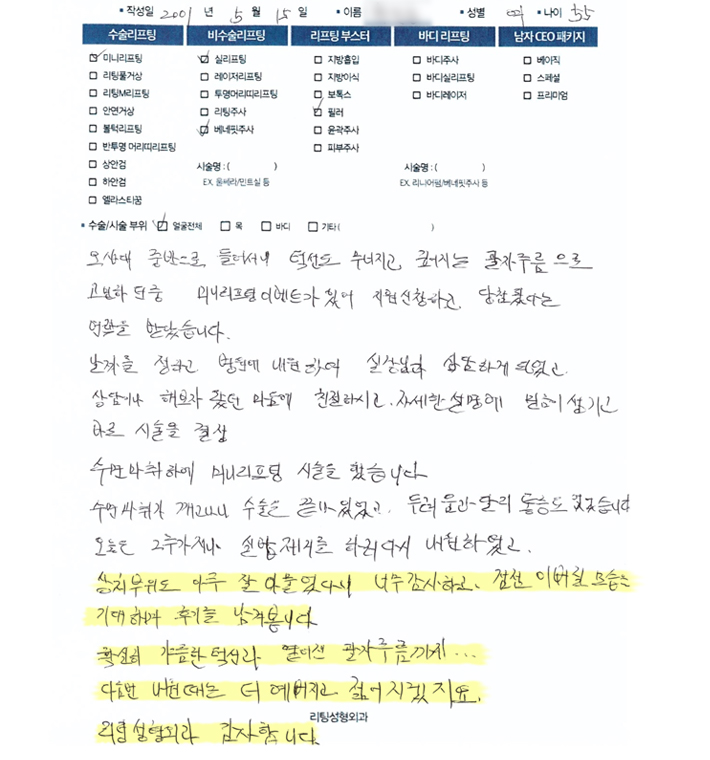 • 작성일 2001 년 5 월 15 일 • 이름 • 성별 여 • 나이 55
수술리프팅 비수술리프팅 리프팅 부스터 바디 리프팅 남자 CEO 패키지
미니리프팅 실리프팅 지방흡입 바디주사 베이직
리팅풀거상 레이저리프팅 지방이식 바디실리프팅 스페셜
리팅M리프팅 투명머리띠리프팅 보톡스 바디레이저 프리미엄
안면거상 리팅주사 필러
볼턱리프팅 베네핏주사 윤곽주사
반투명 머리띠리프팅 피부주사
상안검 시술명 : ( ) 시술명 : ( )
하안검 EX. 울쎄라/민트실 등 EX. 리니어펌/베네핏주사 등
엘라스티꿈
• 수술/시술 부위 얼굴전체 목 바디 기타 ( )
오십대 중반으로 들어서니 턱선도 무너지고, 깊어지는 팔자주름으로
고민하던중 미니리프팅이벤트가 있어 지원신청하고, 당첨됐다는
연락을 받았습니다.
날짜를 정하고 병원에 내원하여 실장님과 상담하게 되었고
상담이나 해보자 했던 마음에 친절하시고, 자세한 설명에 믿음이 생기고
바로 시술을 결심
수면마취하에 미니리프팅 시술을 했습니다
수면마취가 깨고나니 수술은 끝나있었고, 두려움과 달리 통증도 없었습니다
오늘은 2주가지나 실밥제거를 하러다시 내원하였고,
상처부위도 아주 잘 아물었다니 너무감사하고, 점점 이뻐질 모습을
기대하며 후기를 남겨봅니다
확실히 갸름한 턱선과 옅어진 팔자주름까지...
다음번 내원때는 더 예뻐지고 젊어지겠지요.
리팅성형외과 감사합니다.
리팅성형외과